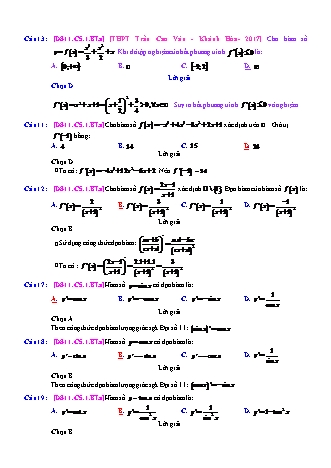 Câu 13: [DS11.C5.1.BT.a] (THPT Trần Cao Vân - Khánh Hòa - 2017) Cho hàm số
y = f(x) = x³/3 + x²/2 + x. Khi đó tập nghiệm của bất phương trình f'(x) ≤ 0 là:
A. (0;+∞) B. ∅ C. [-2;2] D.
Lời giải
Chọn D
f'(x) = x² + x + 1 = (x + 1/2)² + 3/4 > 0, ∀x Suy ra bất phương trình f'(x) ≤ 0 vô nghiệm
Câu 11: [DS11.C5.1.BT.a] Cho hàm số xác định trên Giá trị
f'(-1) bằng:
A. 4 B. 14 C. 15 D. 24
Lời giải
Chọn D
Ta có: f'(x) = -4x³ + 12x² - 6x + 2 Nên f'(-1) = 24
Câu 12: [DS11.C5.1.BT.a] Cho hàm số f(x) = (2x-1)/(x+1) xác định Đạo hàm của hàm số f(x) là:
A. f'(x) = 2/(x+1)² B. f'(x) = 3/(x+1)² C. f'(x) = 1/(x+1)² D. f'(x) = -1/(x+1)²
Lời giải
Chọn B
Sử dụng công thức đạo hàm: ((ax+b)/(cx+d))' = (ad-bc)/(cx+d)²
Ta có: f'(x) = ((2x-1)/(x+1))' = (2.1+1.1)/(x+1)² = 3/(x+1)²
Câu 17: [DS11.C5.1.BT.a] Hàm số y = sin x có đạo hàm là:
A. y' = cos x B. y' = -cos x C. y' = -sin x D. y' = 1/cos x
Lời giải
Chọn A
Theo công thức đạo hàm lượng giác sgk Đại số 11: (sin x)' = cos x
Câu 18: [DS11.C5.1.BT.a] Hàm số y = cos x có đạo hàm là:
A. y' = sin x B. y' = -sin x C. y' = -cos x D. y' = 1/sin x
Lời giải
Chọn B
Theo công thức đạo hàm lượng giác sgk Đại số 11: (cos x)' = -sin x
Câu 19: [DS11.C5.1.BT.a] Hàm số y = tan x có đạo hàm là:
A. y' = cot x B. y' = 1/cos² x C. y' = 1/sin² x D. y' = 1 - tan² x
Lời giải
Chọn B